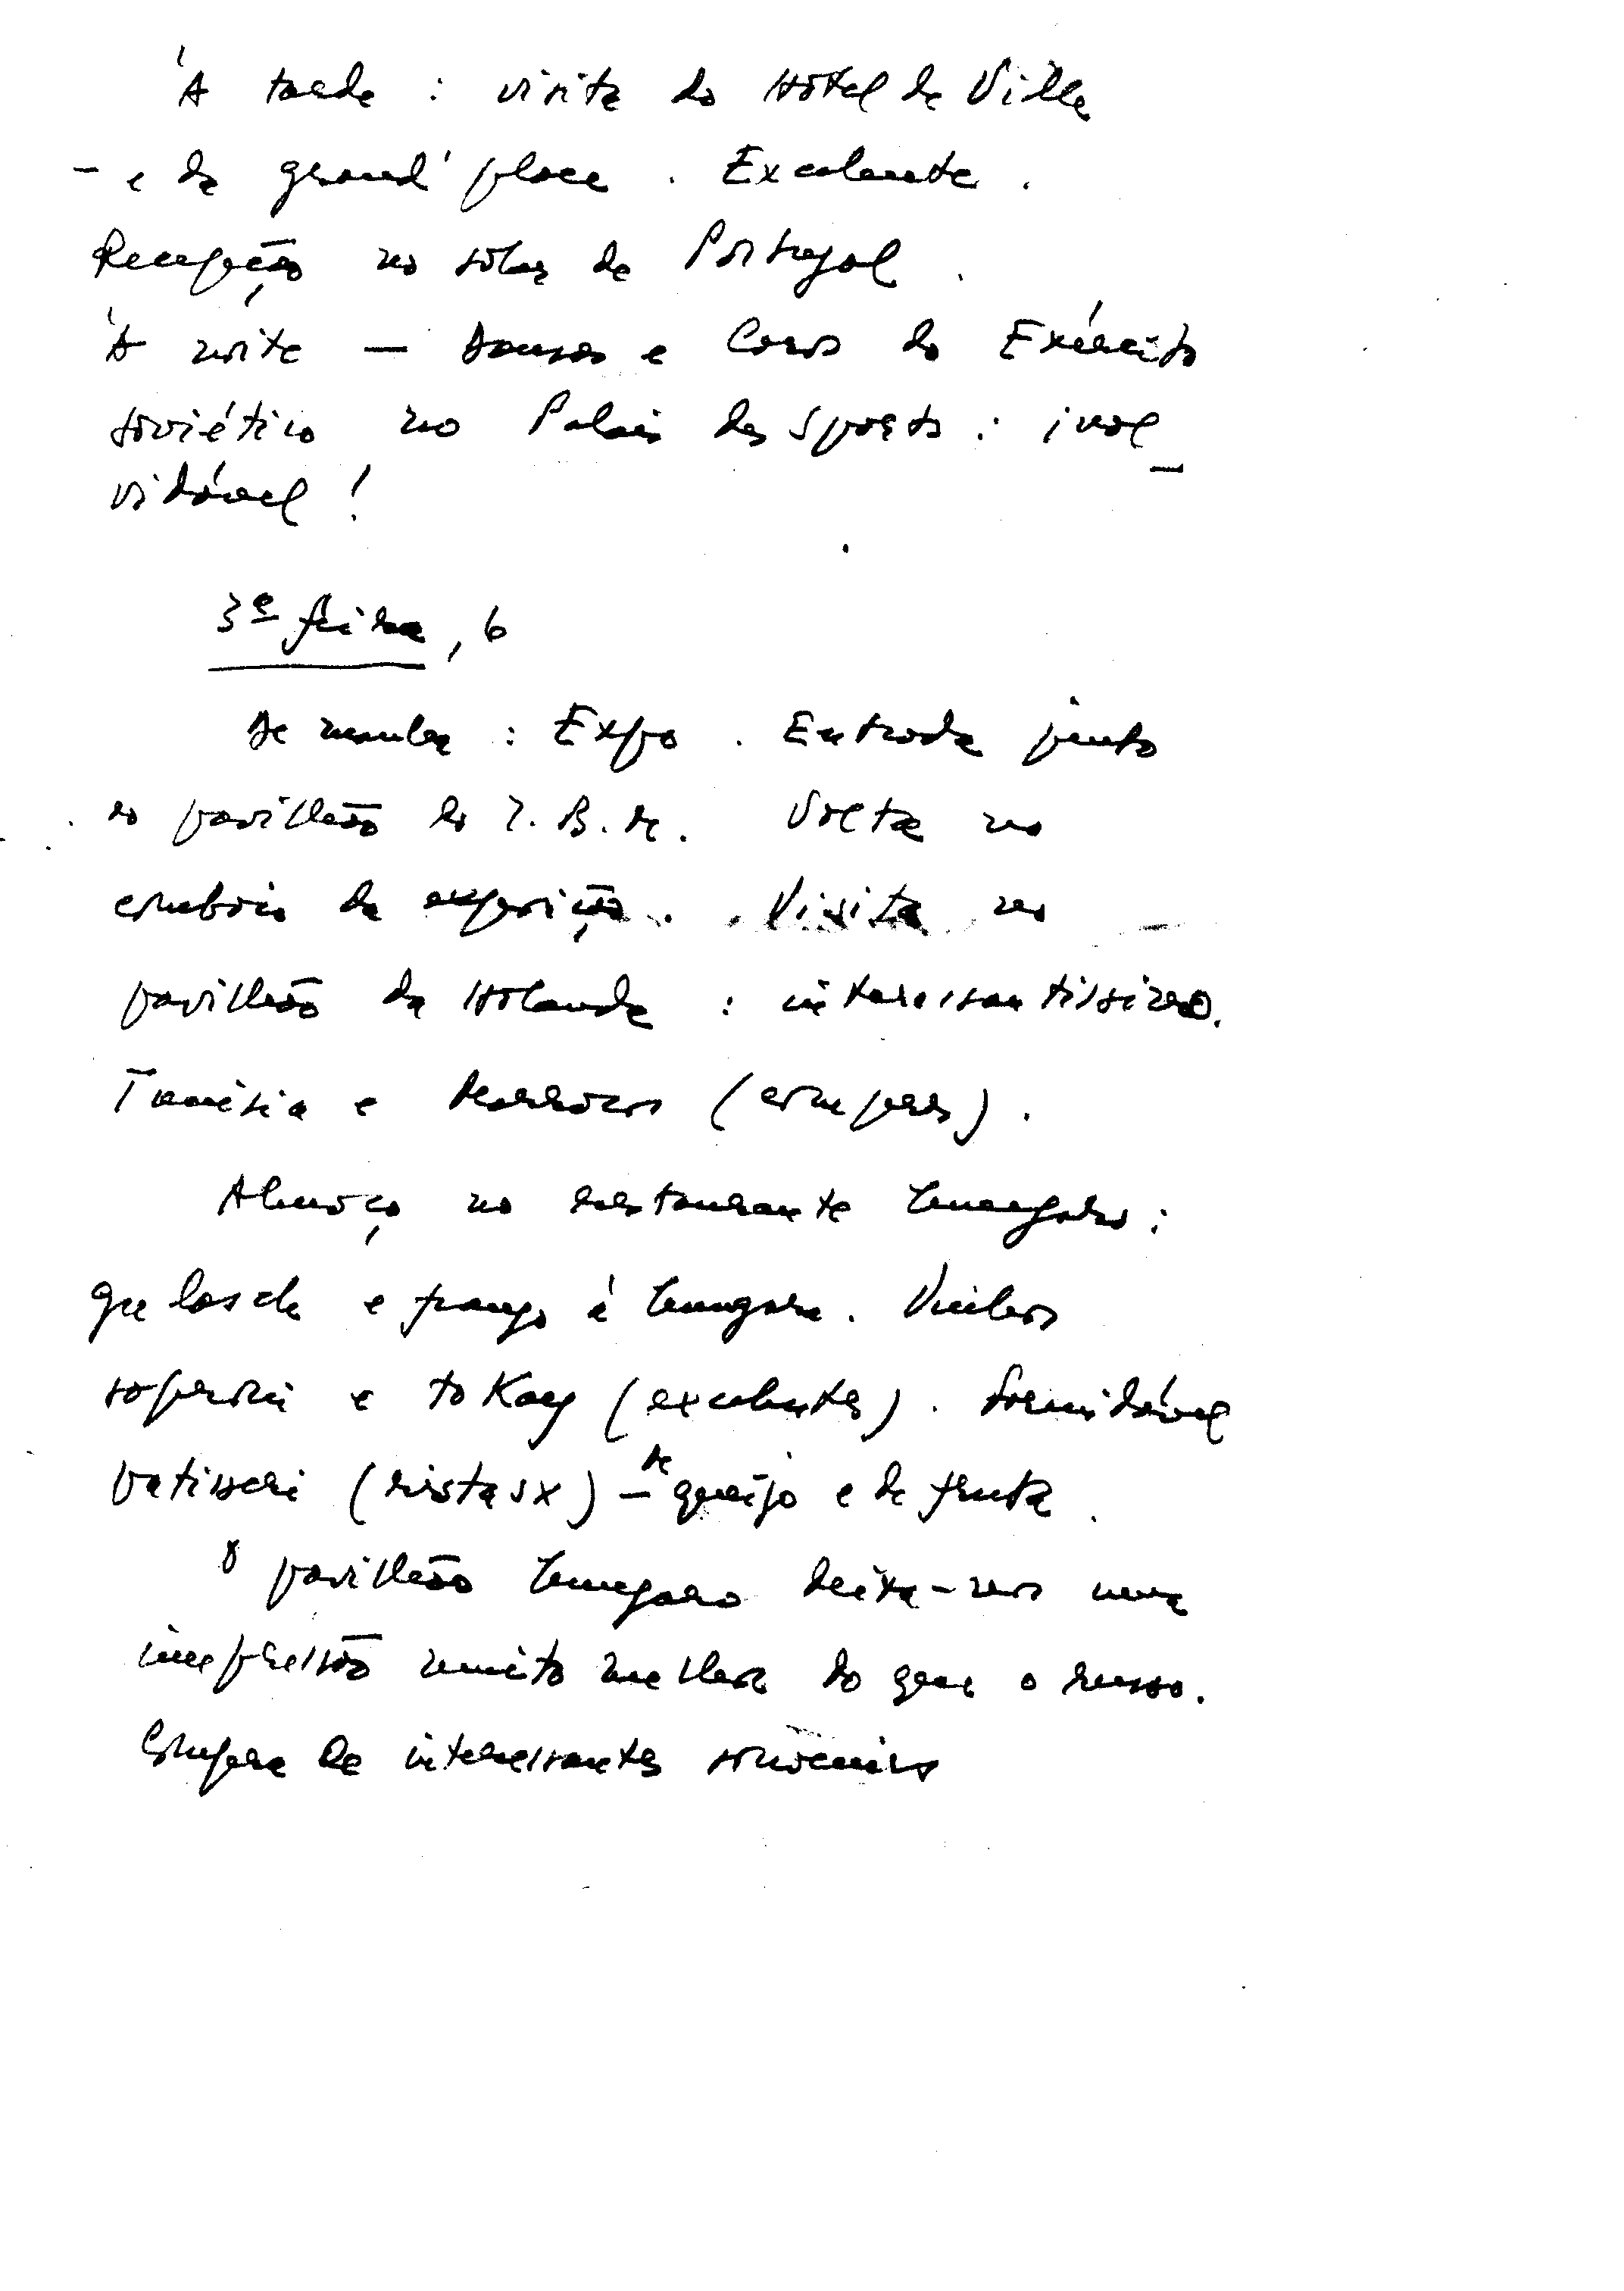 À tarde : visita do Hôtel de Ville
- e da grand' place . Excelente .
Recepção no solar de Portugal .
À noite — Danças e Coros do Exército
soviético no Palais des Sports : inol_
vidável !
3ª feira, 6
De manhã : Expo . Entrada junto
do pavilhão do I.B.M. Volta no
comboio da exposição . Visita no
pavilhão da Holanda : interessantíssimo.
Tunísia e Marrocos (compras) .
Almoço no restaurante húngaro :
gulasch e frango à húngara . Vinhos
soproni e tokay (excelentes) . Formidável
patisseri ( ) — de queijo e de fruta .
O pavilhão húngaro deixa-nos uma
impressão muito melhor do que o russo.
Compra de interessantes souvenirs